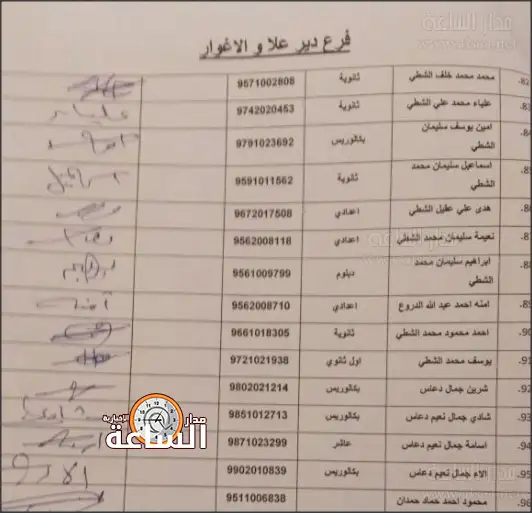 مدار الساعة
فرع دير علا و الاغوار
82. محمد محمد خلف الشطي ثانوية 9571002808
83. علياء محمد علي الشطي ثانوية 9742020453
84. امين يوسف سليمان الشطي بكالوريس 9791023692
85. اسماعيل سليمان محمد الشطي ثانوية 9591011562
86. هدى علي عقيل الشطي اعدادي 9672017508
87. نعيمة سليمان محمد الشطي اعدادي 9562008118
88. ابراهيم سليمان محمد الشطي دبلوم 9561009799
89. امنه احمد عبد الله الدروع اعدادي 9562008710
90. احمد محمود محمد الشطي ثانوية 9661018305
91. يوسف محمد الشطي اول ثانوي 9721021938
92. شرين جمال دعاس بكالوريس 9802021214
93. شادي جمال نعيم دعاس بكالوريس 9851012713
94. اسامة جمال نعيم دعاس عاشر 9871023299
95. الاء جمال نعيم دعاس بكالوريس 9902010839
96. محمود احمد حماد حمدان 9511006838
مدار الساعة الإخبارية